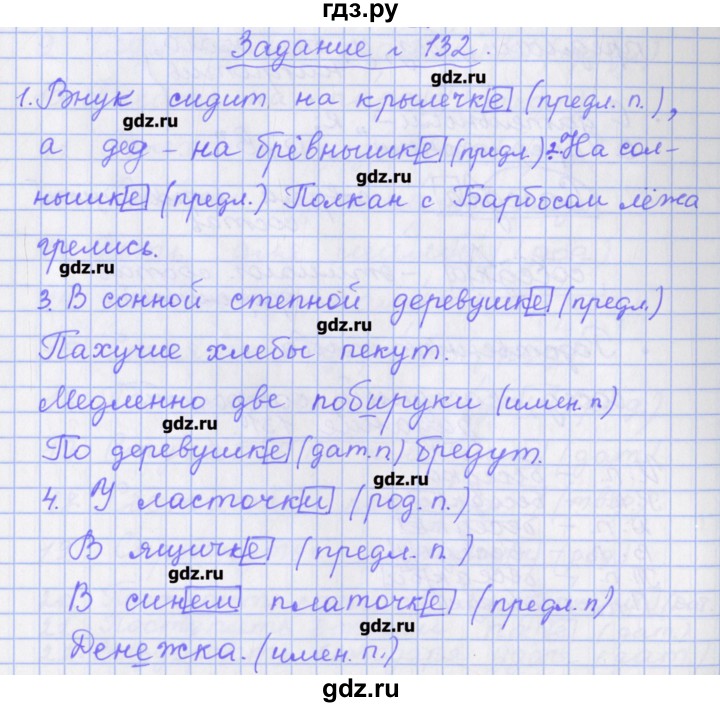 гдз.ру
Задание № 132.
gdz.ru
1. Внук сидит на крылечке (предл. п.),
gdz.ru
а дед – на брёвнышке (предл.) 2. На сол-
gdz.ru
нышке (предл.) Полкан с Барбосом лёжа
грелись.
gdz.ru
3. В сонной степной деревушке (предл.)
gdz.ru
Пахучие хлебы пекут.
Медленно две побируки (имен. п)
gdz.ru
По деревушке (дат. п) бредут.
gdz.ru
4. У ласточки (род. п.)
В ящичке (предл. п.)
gdz.ru
В синем платочке (предл. п)
gdz.ru
Денежка. (имен. п.)
gdz.ru